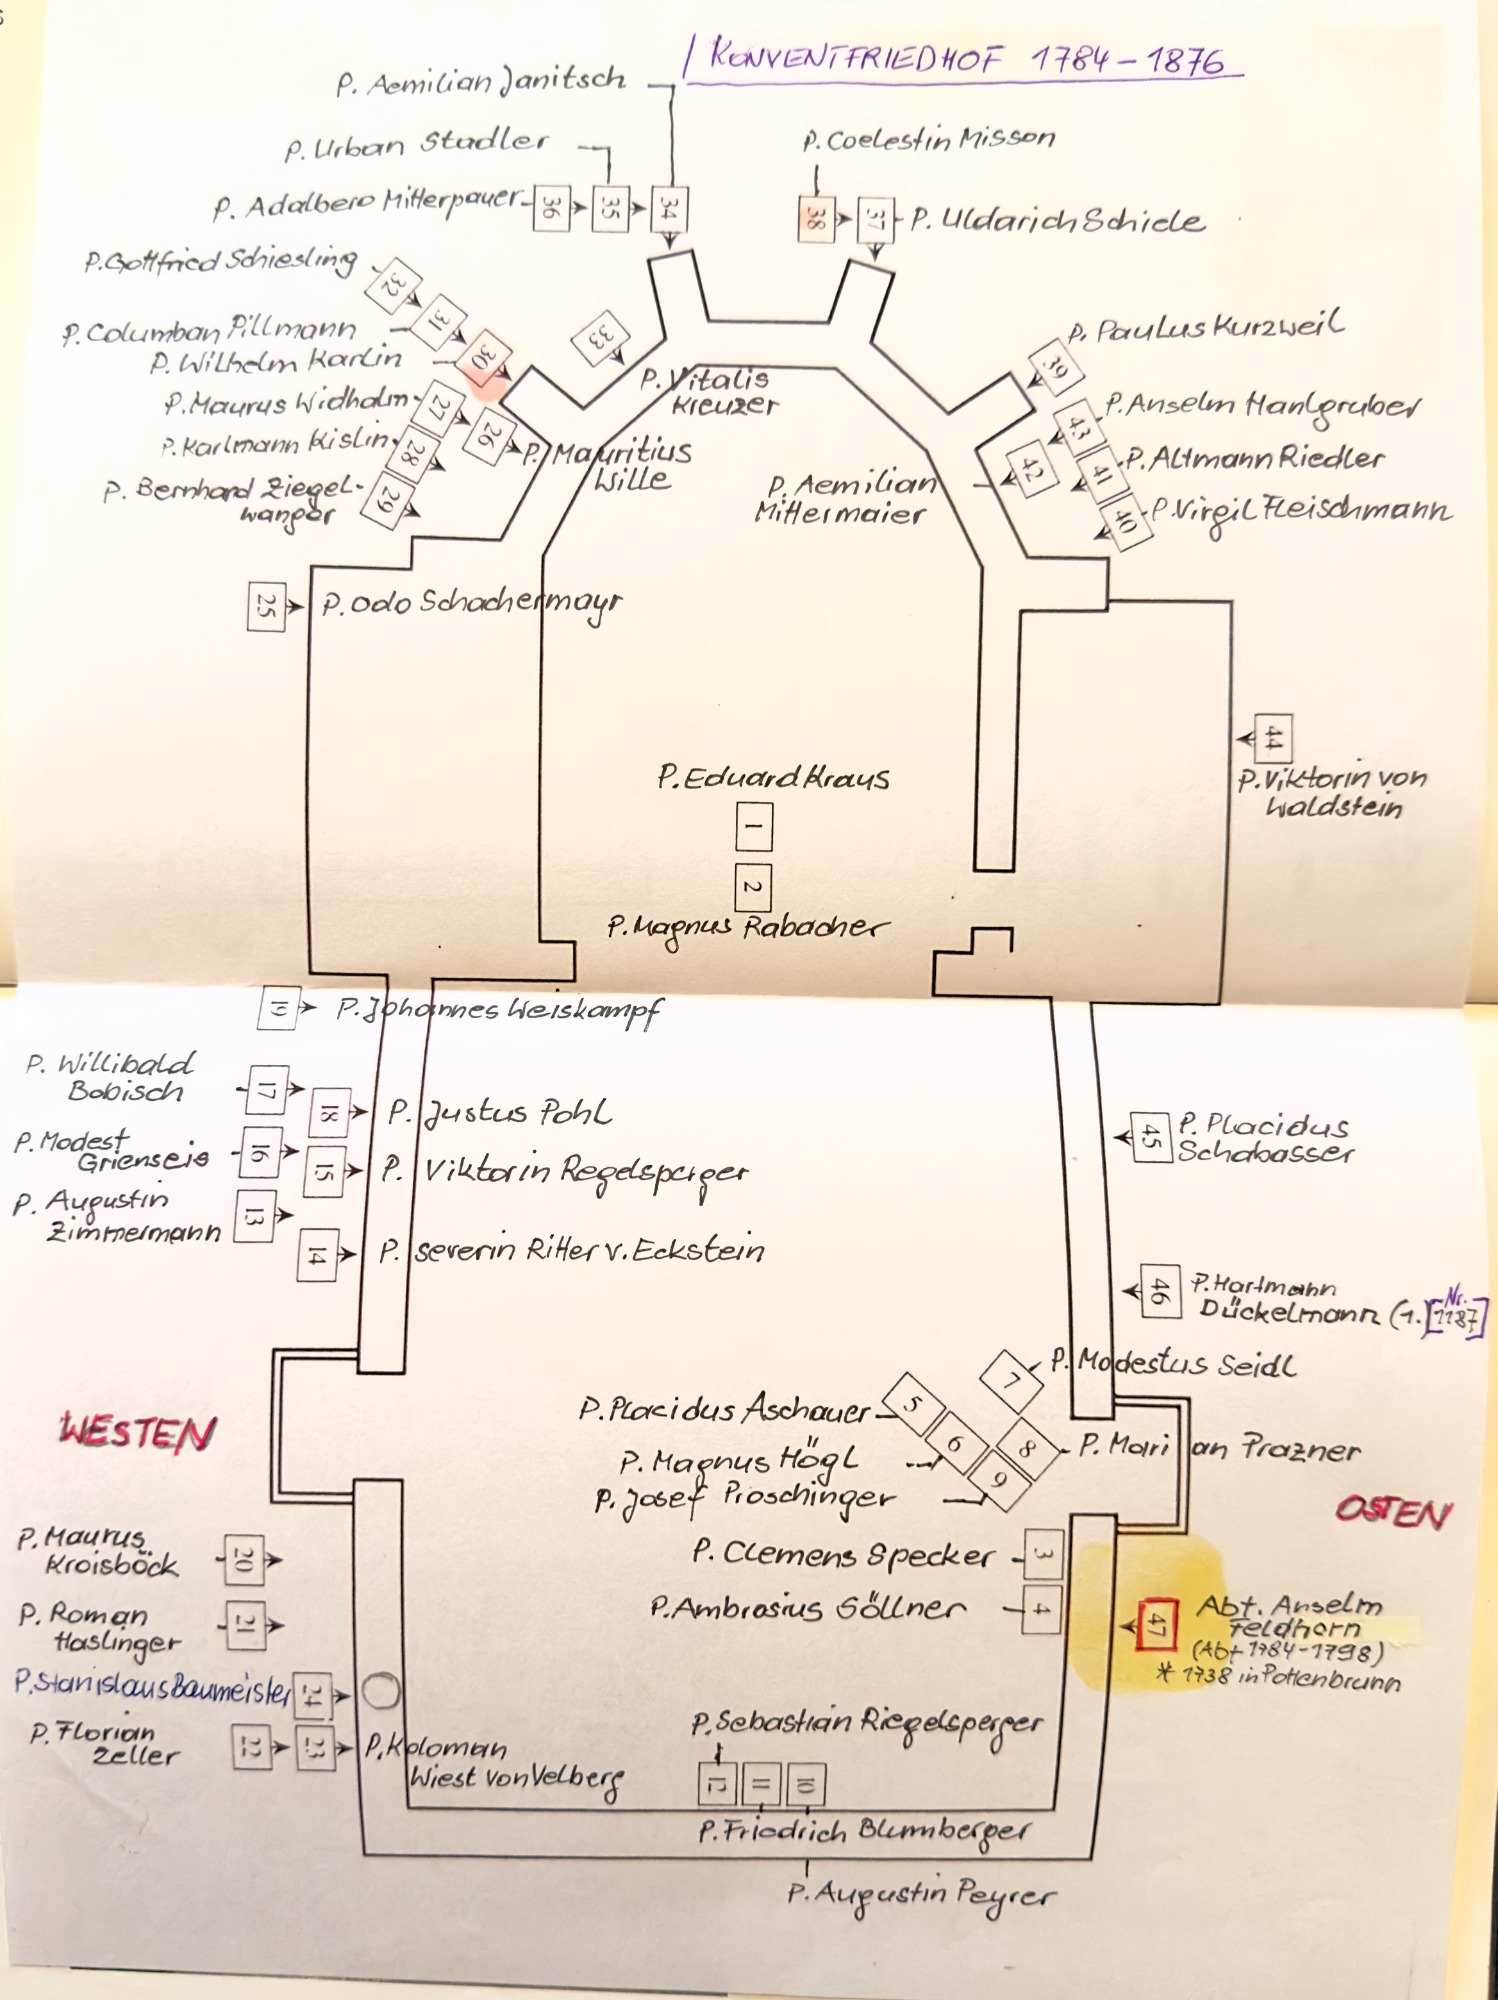 KONVENTFRIEDHOF 1784–1876
P. Aemilian Janitsch
P. Urban Stadler
P. Coelestin Misson
P. Adalbero Mitterpauer
36
35
34
38
37
P. Uldarich Schiele
P. Gottfried Schiesling
32
31
P. Columban Pillmann
P. Wilhelm Karlin
30
33
P. Vitalis
Kreuzer
P. Paulus Kurzweil
39
P. Maurus Widholm
27
26
P. Mauritius
Wille
P. Karlmann Kislin
28
P. Bernhard Ziegel-
wanger
29
P. Anselm Hanlgruber
43
42
P. Altmann Riedler
41
P. Aemilian
Mittermaier
P. Virgil Fleischmann
40
25
P. Odo Schachermayr
44
P. Viktorin von
Waldstein
P. Eduard Kraus
1
2
P. Magnus Rabacher
19
P. Johannes Weiskampf
P. Willibald
Bobisch
17
18
P. Justus Pohl
P. Modest
Grienseis
16
15
P. Viktorin Regelsperger
P. Augustin
Zimmermann
13
14
P. Severin Ritter v. Eckstein
45
P. Placidus
Schabasser
46
P. Hartmann
Dückelmann (1.) [Nr. 1187]
7
P. Modestus Seidl
P. Placidus Aschauer
5
P. Magnus Högl
6
8
P. Marian Prazner
P. Josef Proschinger
9
WESTEN
OSTEN
P. Clemens Specker
3
P. Ambrosius Göllner
4
P. Maurus
Kroisböck
20
P. Roman
Haslinger
21
P. Stanislaus Baumeister
24
P. Florian
Zeller
22
23
P. Koloman
Wiest von Velberg
47
Abt. Anselm
Feldhorn
(Abt 1784-1798)
* 1738 in Pottenbrunn
P. Sebastian Riegelsperger
12
11
10
P. Friedrich Blumberger
P. Augustin Peyrer